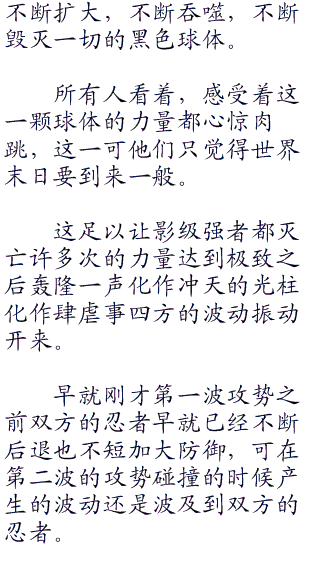 不断扩大，不断吞噬，不断
毁灭一切的黑色球体。
所有人看着，感受着这
一颗球体的力量都心惊肉
跳，这一可他们只觉得世界
末日要到来一般。
这足以让影级强者都灭
亡许多次的力量达到极致之
后轰隆一声化作冲天的光柱
化作肆虐事四方的波动振动
开来。
早就刚才第一波攻势之
前双方的忍者早就已经不断
后退也不短加大防御，可在
第二波的攻势碰撞的时候产
生的波动还是波及到双方的
忍者。